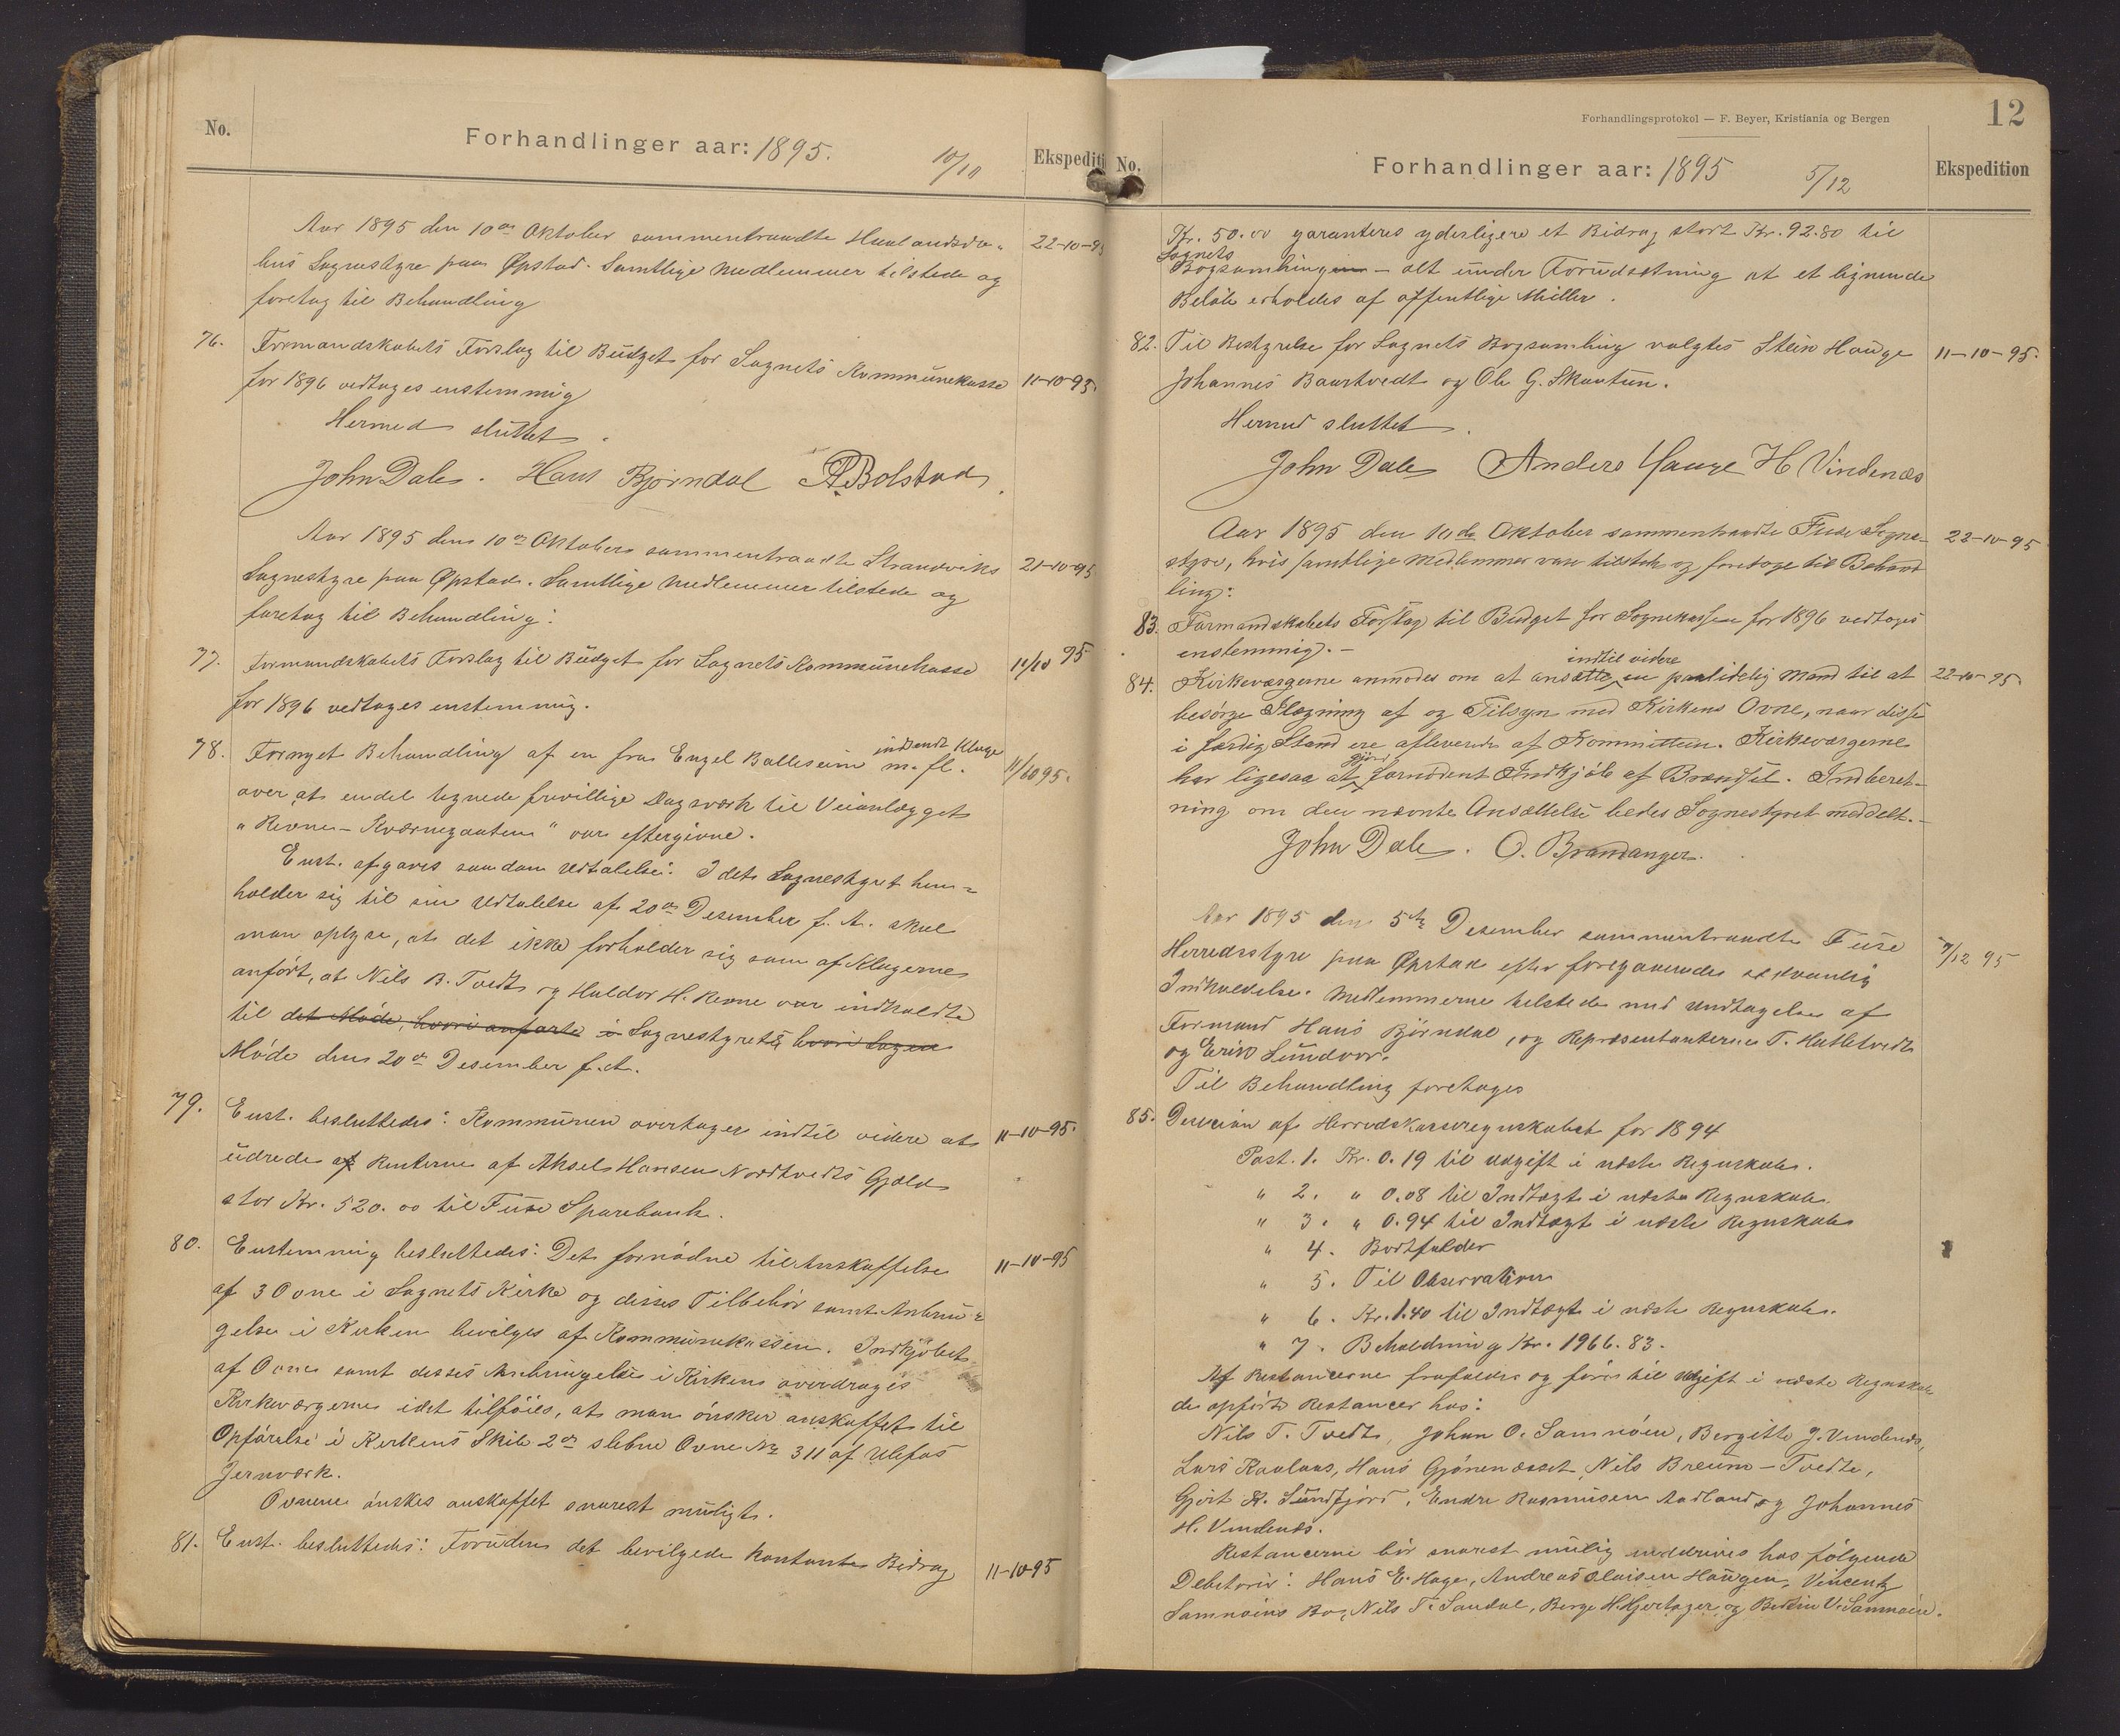 No.
Forhandlinger aar: 1895.
10/10
Ekspediti
Aar 1895 den 10de Oktober sammentraadte Haalandsda-
lens Sognestyre paa Øpstad. Samtlige Medlemmer tilstede og
foretog til Behandling
22-10-95
76. Formandskabets Forslag til Budget for Sognets Kommunekasse
for 1896 vedtages enstemmig
11-10-95.
Hermed sluttet.
John Dale. Hans Bjørndal A Bolstad.
Aar 1895 den 10de Oktober sammentraadte Strandviks
Sognestyre paa Øpstad. Samtlige Medlemmer tilstede og
foretog til Behandling:
21-10-95
77. Formandskabets Forslag til Budget for Sognets Kommunekasse
for 1896 vedtages enstemmig.
11/10 95
78. Fornyet Behandling af en fra Engel Balleseim m. fl. indsendt Klage
over, at endel tegnede frivillige Dagsværk til Veianlægget
"Revne-Kværnegauten" var eftergivne.
11/10 95.
Enst. afgaves saadan Udtalelse: I det Sognestyret hen-
holder sig til sin Udtalelse af 20de Desember f. A. skal
man oplyse, at det ikke forholder sig som af Klagerne
anført, at Nils B. Tvedt og Haldor H. Revne var indkaldte
til det Møde, hvori anførte i Sognestyrets hvori Sagen
Møde den 20de Desember f. A.
79. Enst. besluttedes: Kommunen overtager indtil videre at
udrede af Renterne af Aksel Hansen Nordtvedts Gjæld
stor Kr. 520.00 til Fuse Sparebank.
11-10-95.
80. Enstemmig besluttedes: Det fornødne til Anskaffelse
af 3 Ovne i Sognets Kirke og disses Tilbehør samt Anbrin-
gelse i Kirken bevilges af Kommunekassen. Indkjøbet
af Ovne samt disses Anbringelse i Kirken overdrages
Kirkeværgerne idet tilføies, at man ønsker anskaffet til
Opførelse i Kirkens Skib 2de slebne Ovne No 311 af Ulefos
Jernværk.
11-10-95
Ovnene ønskes anskaffet snarest muligt.
81. Enst. besluttedes: Foruden det bevilgede kontante Bidrag
11-10-95
Forhandlingsprotokol — F. Beyer, Kristiania og Bergen
12
No.
Forhandlinger aar: 1895
5/12
Ekspedition
Kr. 50.00 garanteres yderligere et Bidrag stort Kr. 92.80 til
Sognets
Bogsamlingen - alt under Forudsætning at et lignende
Beløb erholdes af offentlige Midler.
82. Til Bestyrelse for Sognets Bogsamling valgtes Stein Hauge
Johannes Baartvedt og Ole G. Skaatun.
11-10-95.
Hermed sluttet.
John Dale Anders Hauge H Vindenæs
Aar 1895 den 10de Oktober sammentraadte Fuse Sogne-
styre, hvis samtlige Medlemmer vare tilstede og foretoges til Behand
ling:
22-10-95
83. Formandskabets Forslag til Budget for Sognekassen for 1896 vedtoges
enstemmig.-
indtil videre
84. Kirkeværgerne anmodes om at ansætte en paalidelig Mand til at
besørge Ilægning af og Tilsyn med Kirkens Ovne, naar disse
i færdig Stand ere afleverede af Kommitteen. Kirkeværgerne
har ligesaa at gjøre fornødent Indkjøb af Brændsel. Indberet-
ning om den nævnte Ansættelse bedes Sognestyret meddelt.-
22-10-95.
John Dale. O. Brandanger.
Aar 1895 den 5te Desember sammentraadte Fuse
Herredsstyre paa Øpstad efter foregaaende sædvanlig
Indkaldelse. Medlemmerne tilstede med Undtagelse af
Formand Hans Bjørndal, og Repræsentanterne T. Hatletvedt
og Erik Sundvor.
7/12 95
Til Behandling foretoges
85. Decision af Herredskasseregnskabet for 1894
Post. 1. Kr. 0.19 til Udgift i næste Regnskab.
" 2. " 0.08 til Indtægt i næste Regnskab.
" 3. " 0.94 til Indtægt i næste Regnskab
" 4. Bortfalder
" 5. Til Observation
" 6. Kr. 1.40 til Indtægt i næste Regnskab.
" 7. Beholdning Kr. 1966.83.
Af Restancerne frafaldes og føres til Udgift i næste Regnskab
de opførte Restancer hos:
Nils T. Tvedt, Johan O. Samnøen, Bergitte J. Vindenæs,
Lars Kaalaas, Hans Gjønenæsset, Nils Breum-Tvedte,
Gjert K. Sundfjord, Endre Rasmusen Aadland og Johannes
H. Vindenæs.
Restancerne bør snarest mulig inddrives hos følgende
Debitorer: Hans E. Hage, Andreas Olaisen Haugen, Vincentz
Samnøens Bo, Nils T. Sandal, Berge H. Hjertager og Bertin V. Samnøen.